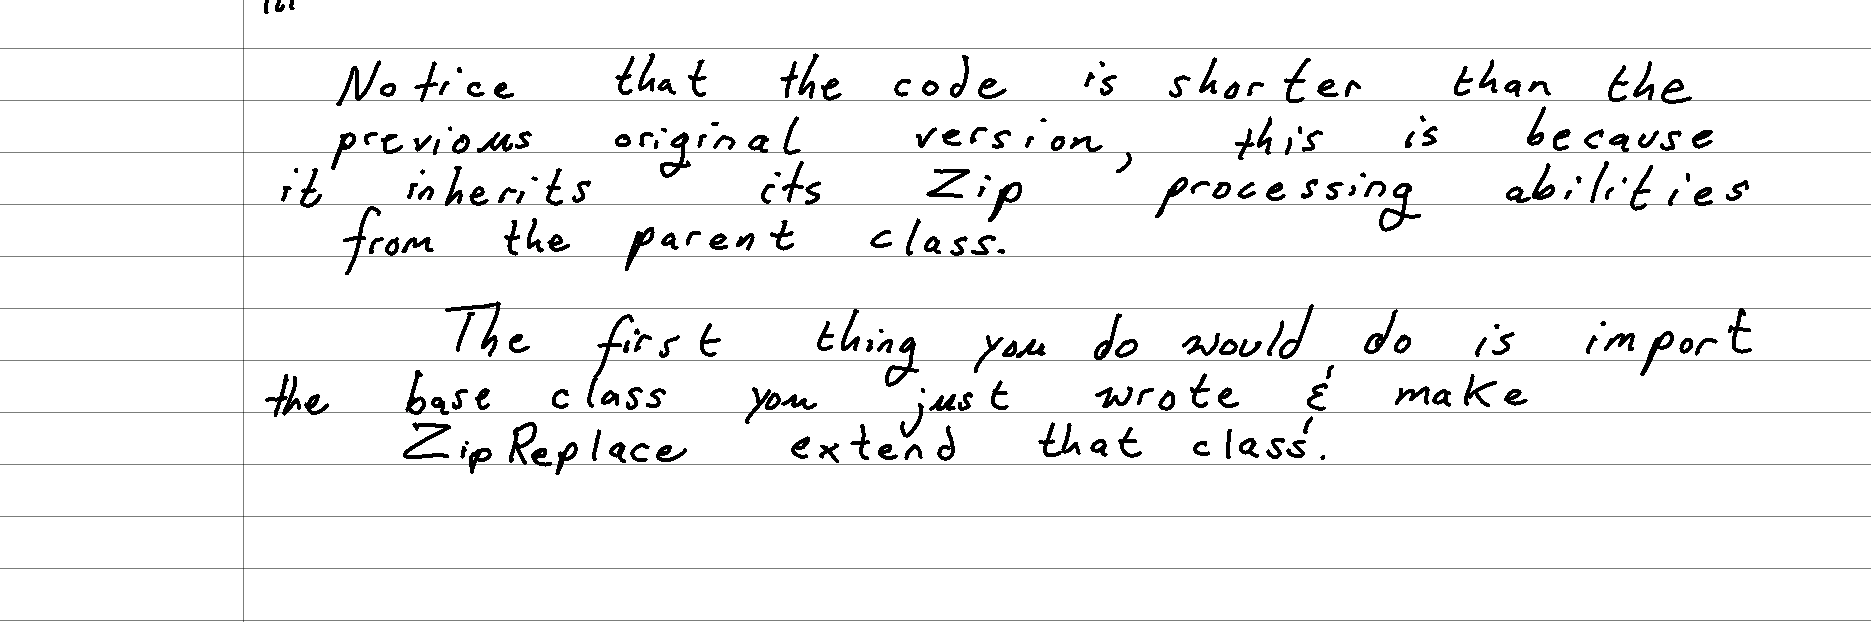 Notice that the code is shorter than the
previous original version, this is because
it inherits its Zip processing abilities
from the parent class.
The first thing you do would do is import
the base class you just wrote & make
ZipReplace extend that class.